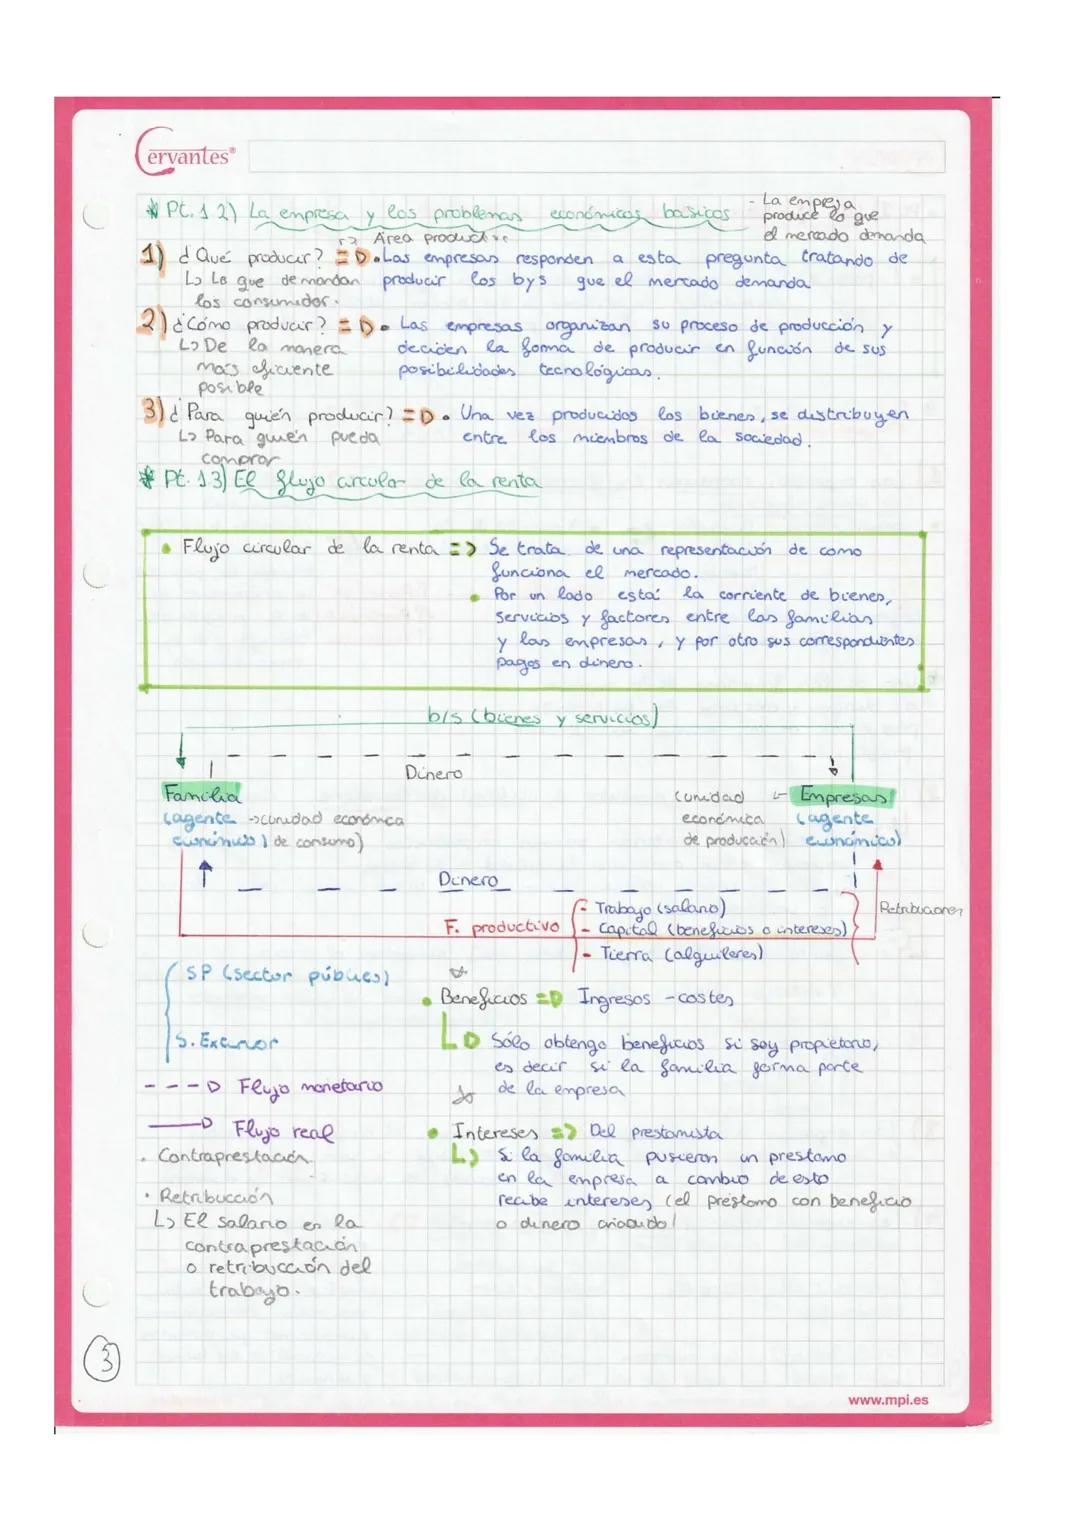 Cervantes®
* Pt. 1 2) La empresa y los problemas económicos basicos
- La empresa
produce lo que
el mercado demanda
↱ Área productiva
1) ¿Qué producir? => • Las empresas responden a esta pregunta tratando de
↳ Lo que demandan producir los bys que el mercado demanda
los consumidor.
2) ¿Cómo producir? => • Las empresas organizan su proceso de producción y
↳ De la manera deciden la forma de producir en función de sus
mas eficiente posibilidades tecnológicas.
posible
3) ¿Para quién producir? => • Una vez producidos los bienes, se distribuyen
↳ Para quién pueda entre los miembros de la sociedad.
comprar
* Pt. 1.3) El flujo circular de la renta
• Flujo circular de la renta => Se trata de una representación de como
funciona el mercado.
• Por un lado está la corriente de bienes,
servicios y factores entre las familias
y las empresas, y por otro sus correspondientes
pagos en dinero.
b/s (bienes y servicios)
Dinero
Familia
(agente → (unidad económica
económico) de consumo)
(unidad ← Empresas
económica (agente
de producción) económico)
Dinero
F. productivo
- Trabajo (salario)
- Capital (beneficios o intereses)
- Tierra (alquileres)
Retribuciones
SP (sector público)
S. Exterior
- - - → Flujo monetario
→ Flujo real
• Contraprestación
• Retribucción
↳ El salario es la
contraprestación
o retribucción del
trabajo.
• Beneficios => Ingresos - costes
↳ Sólo obtengo beneficios si soy propietario,
es decir si la familia forma parte
de la empresa
• Intereses => Del prestamista
↳ Si la familia pusieron un prestamo
en la empresa a cambio de esto
recibe intereses (el préstamo con beneficio
o dinero añadido)
3
www.mpi.es